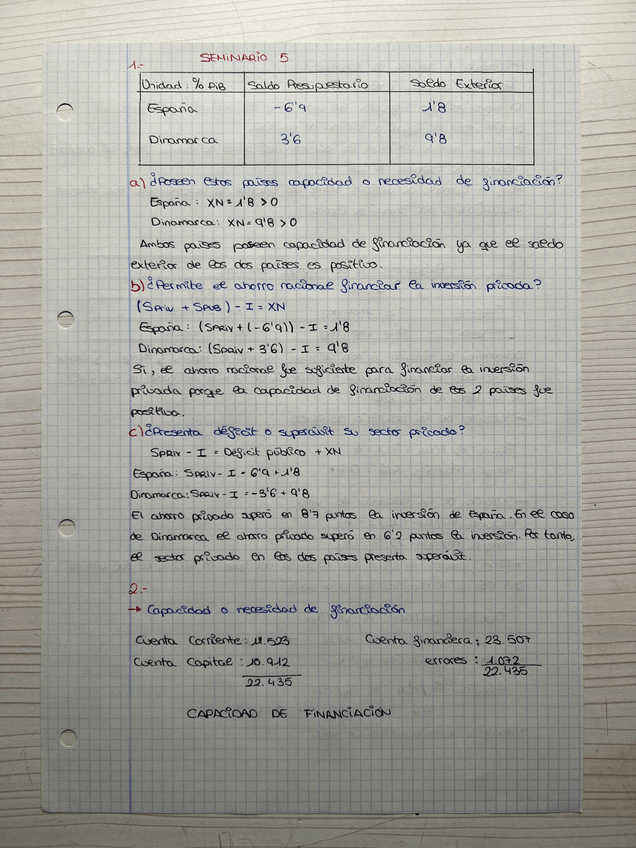 SEMINARIO 5
1.-
Unidad: % PIB Saldo Presupuestario Saldo Exterior
España -6'9 1'8
Dinamarca 3'6 9'8
a) ¿Poseen estos países capacidad o necesidad de financiación?
España: XN = 1'8 > 0
Dinamarca: XN = 9'8 > 0
Ambos países poseen capacidad de financiación ya que el saldo
exterior de los dos países es positivo.
b) ¿Permite el ahorro nacional financiar la inversión privada?
(SPRIV + SPUB) - I = XN
España: (SPRIV + (-6'9)) - I = 1'8
Dinamarca: (SPRIV + 3'6) - I = 9'8
Si, el ahorro nacional fue suficiente para financiar la inversión
privada porque la capacidad de financiación de los 2 países fue
positiva.
c) ¿Presenta déficit o superávit su sector privado?
SPRIV - I = Déficit público + XN
España: SPRIV - I = 6'9 + 1'8
Dinamarca: SPRIV - I = -3'6 + 9'8
El ahorro privado superó en 8'7 puntos la inversión de España. En el caso
de Dinamarca el ahorro privado superó en 6'2 puntos la inversión. Por tanto,
el sector privado en los dos países presenta superávit.
2.-
→ Capacidad o necesidad de financiación
Cuenta Corriente: 11.523 Cuenta financiera: 23.507
Cuenta Capital: 10.912 errores: 1.072
22.435 22.435
CAPACIDAD DE FINANCIACIÓN